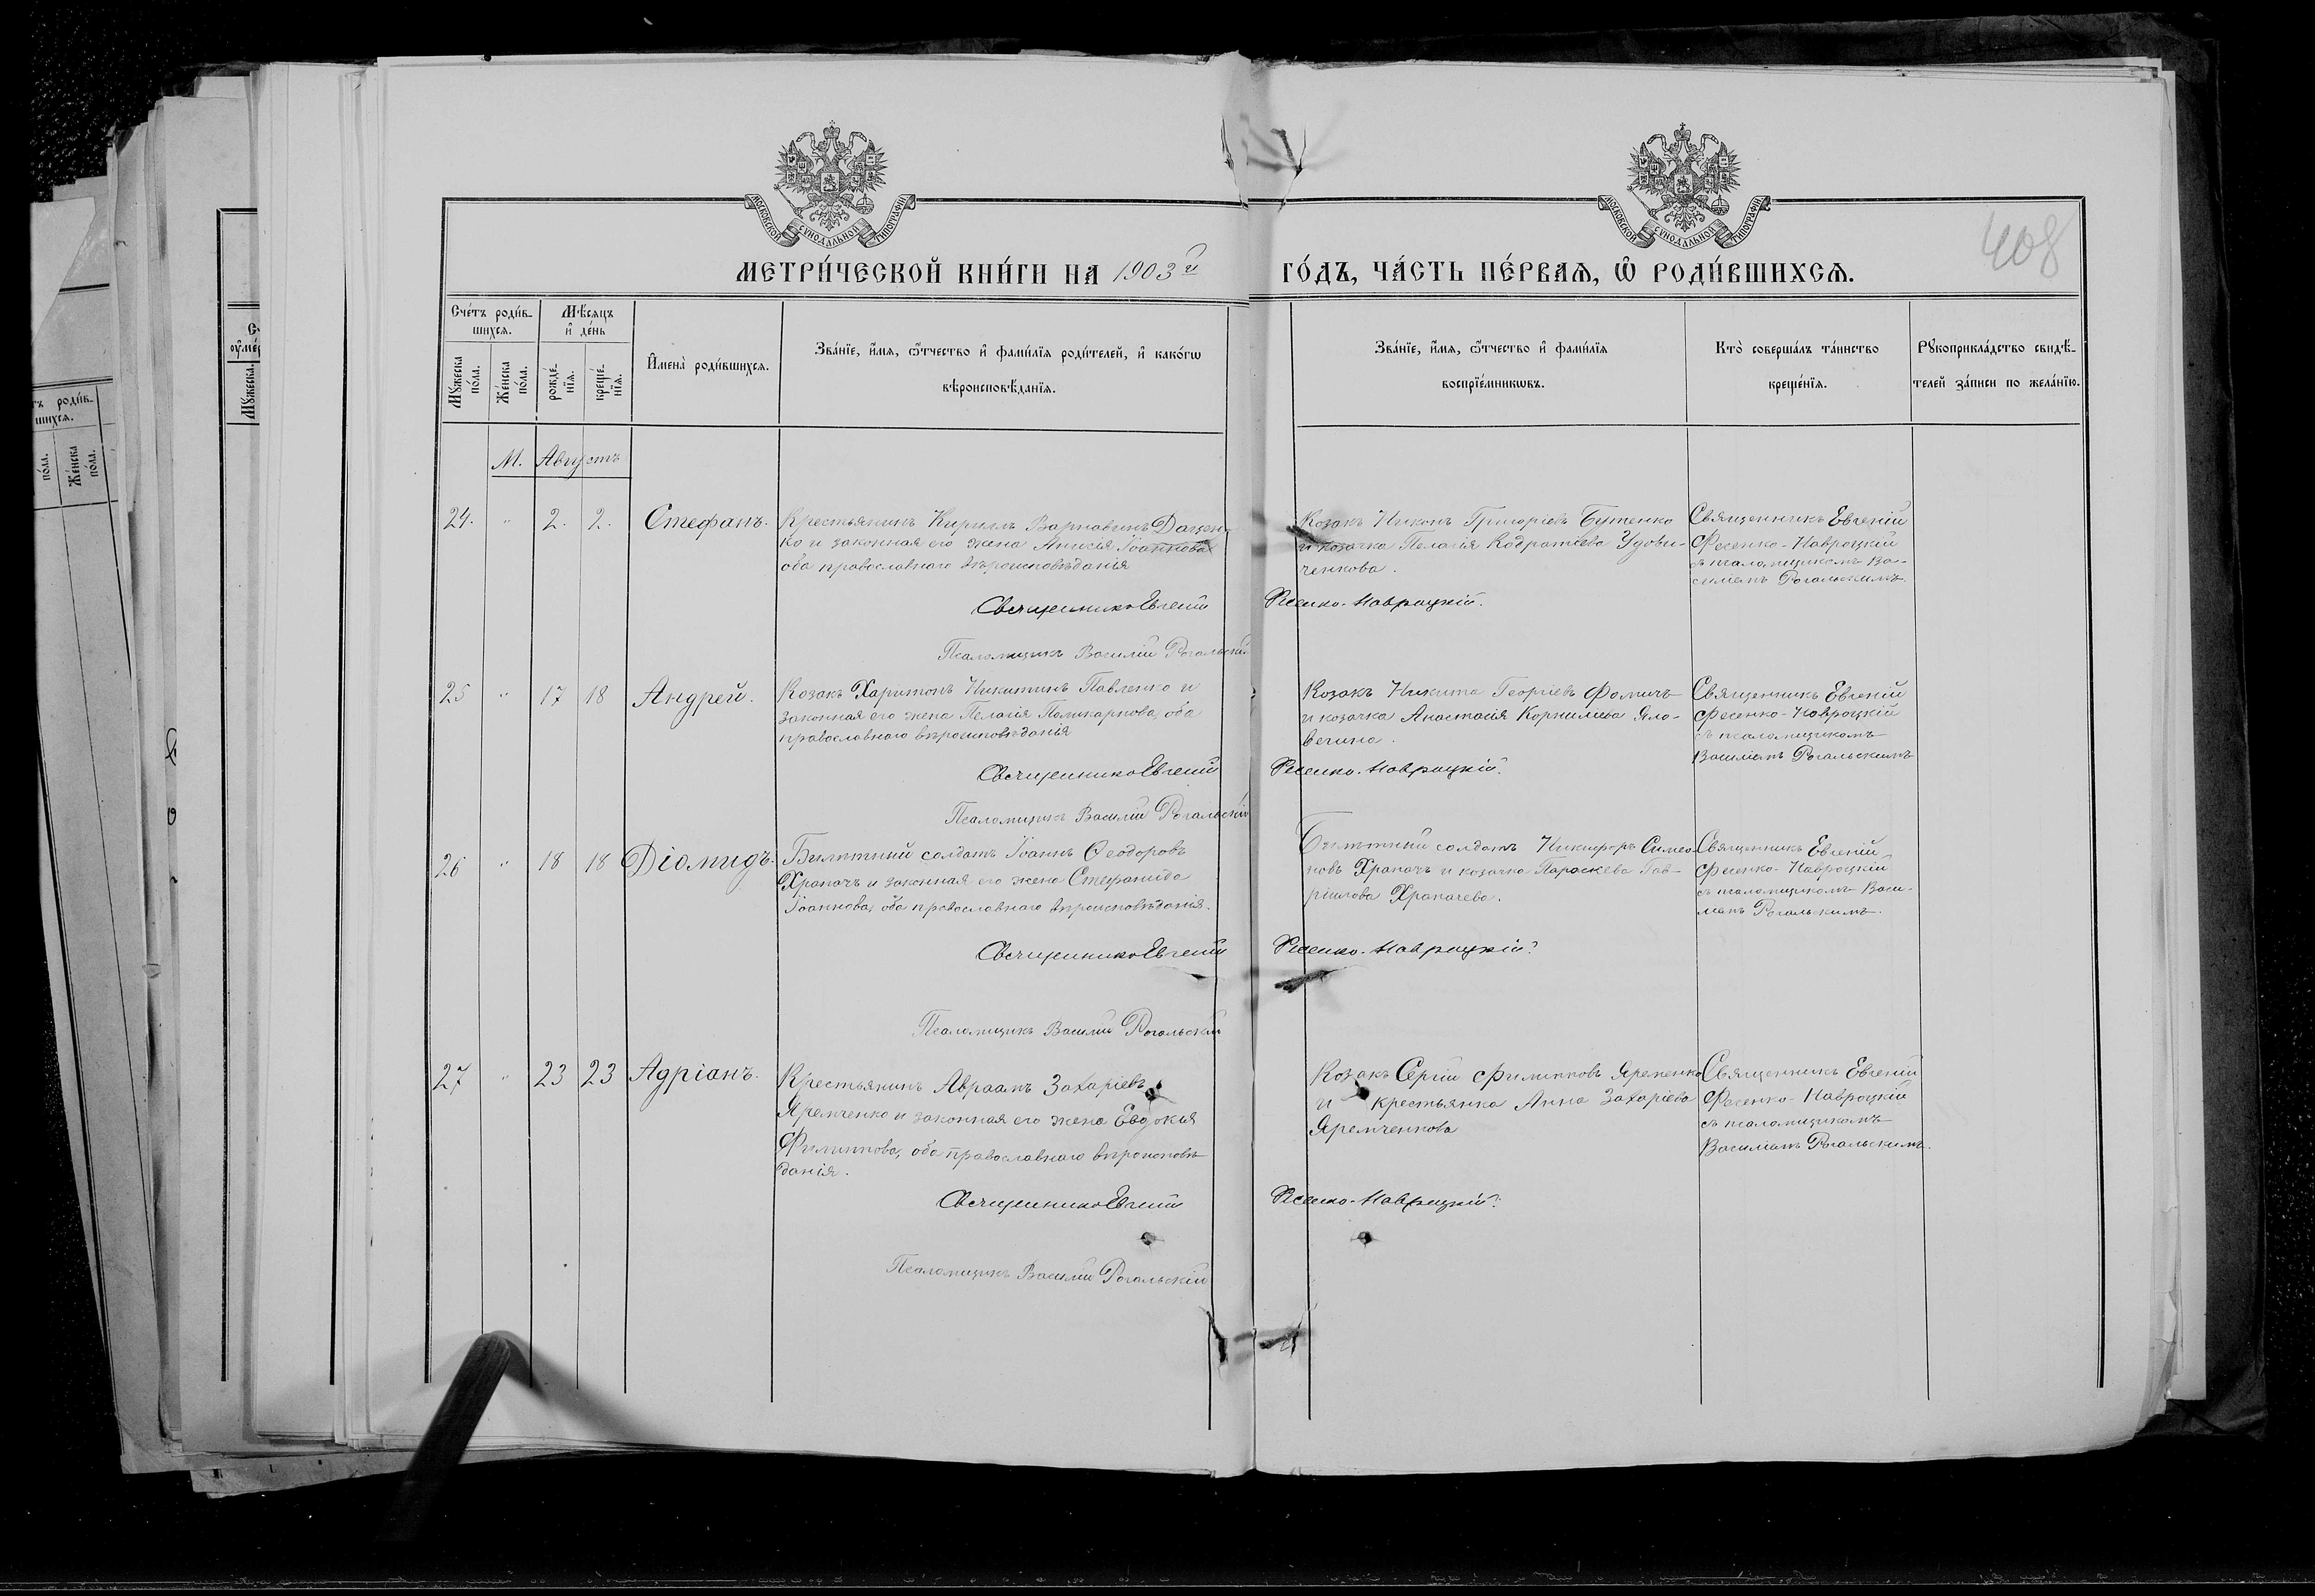 МОСКОВСКОЙ СѴНОДАЛЬНОЙ ТИПОГРАФІИ
МОСКОВСКОЙ СѴНОДАЛЬНОЙ ТИПОГРАФІИ
408
МЕТРИ́ЧЕСКОЙ КНИ́ГИ НА 1903й ГО́ДЪ, ЧА́СТЬ ПЕ́РВАѦ, Ѡ РОДИ́ВШИХСѦ.
Сче́тъ роди́в-
шихсѧ.
Мꙋ́жеска
по́ла.
Же́нска
по́ла.
Мѣ́сѧцъ
и҆ де́нь
рожде́-
нїѧ.
креще́-
нїѧ.
И҆мена̀ роди́вшихсѧ.
Зва́нїе, и҆́мѧ, ѻ҆́тчество и҆ фами́лїѧ роди́телей, и҆ како́гѡ
вѣроисповѣ́данїѧ.
Зва́нїе, и҆́мѧ, ѻ҆́тчество и҆ фами́лїѧ
воспрїе́мникѡвъ.
Кто̀ соверша́лъ та́инство
креще́нїѧ.
Рꙋкоприкла́дство свидѣ́-
телей за́писи по жела́нїю.
М. Августъ
24. " 2. 2. Стефанъ.
Крестьянинъ Кириллъ Варнавинъ Дацен-
ко и законная его жена Анисія Іоаннова
оба православнаго вѣроисповѣданія
Козакъ Никонъ Григоріевъ Бутенко
и козачка Пелагія Кодратіева Удови-
ченкова.
Священникъ Евгеній
Фесенко-Навроцкій
съ псаломщикомъ Ва-
силіемъ Рогальскимъ.
Священникъ Евгеній Фесенко-Навроцкій.
Псаломщикъ Василій Рогальскій
25 " 17 18 Андрей.
Козакъ Харитонъ Никитинъ Павленко и
законная его жена Пелагія Поликарпова, оба
православнаго вѣроисповѣданія
Козакъ Никита Георгіевъ Фомичъ
и козачка Анастасія Корниліева Яло-
вегина.
Священникъ Евгеній
Фесенко-Навроцкій
съ псаломщикомъ
Василіемъ Рогальскимъ
Священникъ Евгеній Фесенко-Навроцкій.
Псаломщикъ Василій Рогальскій
26 " 18 18 Діомидъ.
Билетный солдатъ Іоаннъ Ѳеодоровъ
Храпачъ и законная его жена Стефанида
Іоаннова, оба православнаго вѣроисповѣданія.
Билетный солдатъ Никифоръ Симео-
новъ Храпачъ и козачка Параскева Гав-
ріилова Храпачева.
Священникъ Евгеній
Фесенко-Навроцкій
съ псаломщикомъ Васи-
ліемъ Рогальскимъ.
Священникъ Евгеній Фесенко-Навроцкій.
Псаломщикъ Василій Рогальскій
27 " 23 23 Адріанъ.
Крестьянинъ Авраамъ Захаріевъ
Яремченко и законная его жена Евдокія
Филиппова, оба православнаго вѣроисповѣ-
данія.
Козакъ Сергій Филипповъ Яременко
и крестьянка Анна Захаріева
Яремченкова
Священникъ Евгеній
Фесенко-Навроцкій
съ псаломщикомъ
Василіемъ Рогальскимъ.
Священникъ Евгеній Фесенко-Навроцкій.
Псаломщикъ Василій Рогальскій